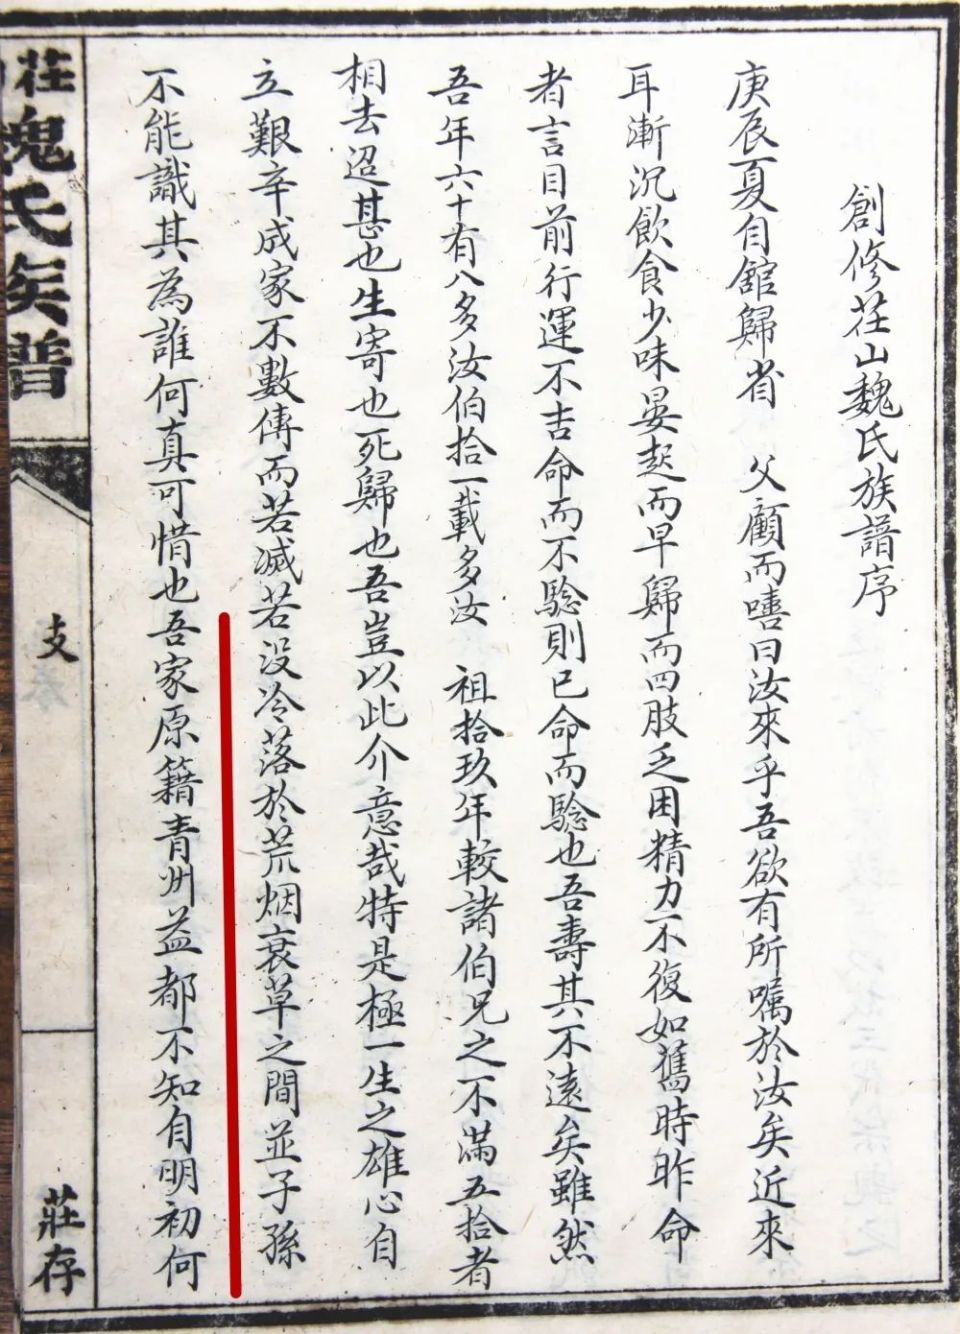 創修茌山魏氏族譜序
庚辰夏自館歸省 父顧而嘻曰汝來乎吾欲有所嘱於汝矣近來
耳漸沉飲食少味晏起而早歸而四肢乏困精力不復如舊時昨命
者言目前行運不吉命而不騐則已命而騐也吾壽其不遠矣雖然
吾年六十有八多汝伯拾一載多汝 祖拾玖年較諸伯兄之不滿五拾者
相去迢甚也生寄也死歸也吾豈以此介意哉特是極一生之雄心自
立艱辛成家不數傳而若滅若没冷落於荒烟衰草之間並子孫
不能識其為誰何真可惜也吾家原籍青州益都不知自明初何
茌魏氏族譜
支
莊存